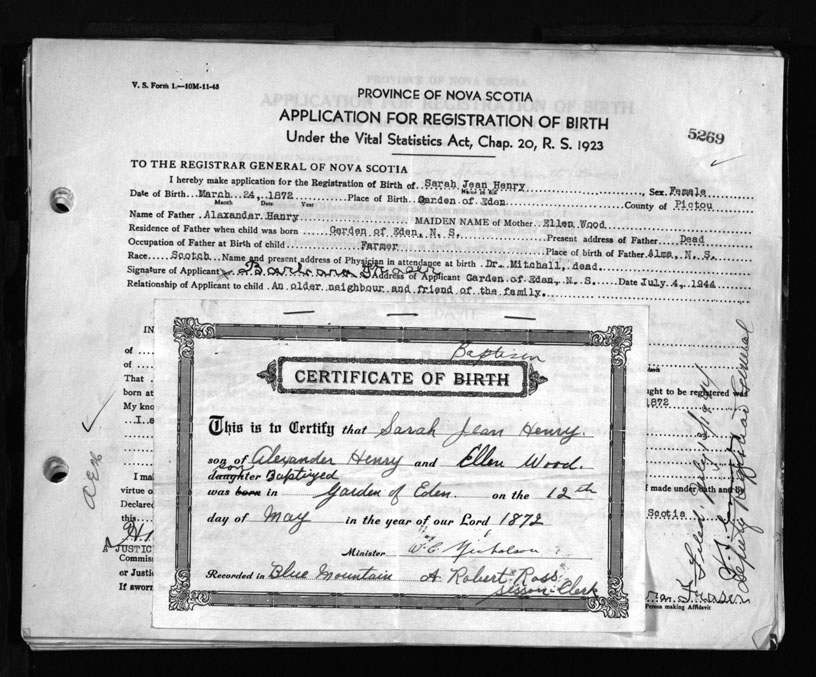 V. S. Form 1.—10M-11-43
PROVINCE OF NOVA SCOTIA
APPLICATION FOR REGISTRATION OF BIRTH
Under the Vital Statistics Act, Chap. 20, R. S. 1923
5269
TO THE REGISTRAR GENERAL OF NOVA SCOTIA
I hereby make application for the Registration of Birth of Sarah Jean Henry, Sex Female
Date of Birth March 24, 1872 Place of Birth Garden of Eden County of Pictou
Month Date Year
Name of Father Alaxandar Hanry MAIDEN NAME of Mother Ellen Wood
Residence of Father when child was born Garden of Eden, N. S. Present address of Father Dead
Occupation of Father at Birth of child Farmer Place of birth of Father Alma, N. S.
Race Scotch Name and present address of Physician in attendance at birth Dr. Mitchell, dead.
Signature of Applicant Barbara Fraser Address of Applicant Garden of Eden, N. S. Date July 4, 1944
Relationship of Applicant to child An older neighbour and friend of the family.
IN
of
of
That
born at
My kno
I s
ught to be registered was
1872
Baptism
CERTIFICATE OF BIRTH
This is to Certify that Sarah Jean Henry.
son of Alexander Henry and Ellen Wood.
daughter Baptized
was born in Garden of Eden. on the 12th
day of May in the year of our Lord 1872
Minister W. C. Nicholson
Recorded in Blue Mountain A. Robert Ross
session Clerk
I ma
virtue o
Declared
this
A JUSTIC
Commiss
or Justic
If sworn
f made under oath and by
Scotia
Fraser
Person making Affidavit
Deputy Registrar General